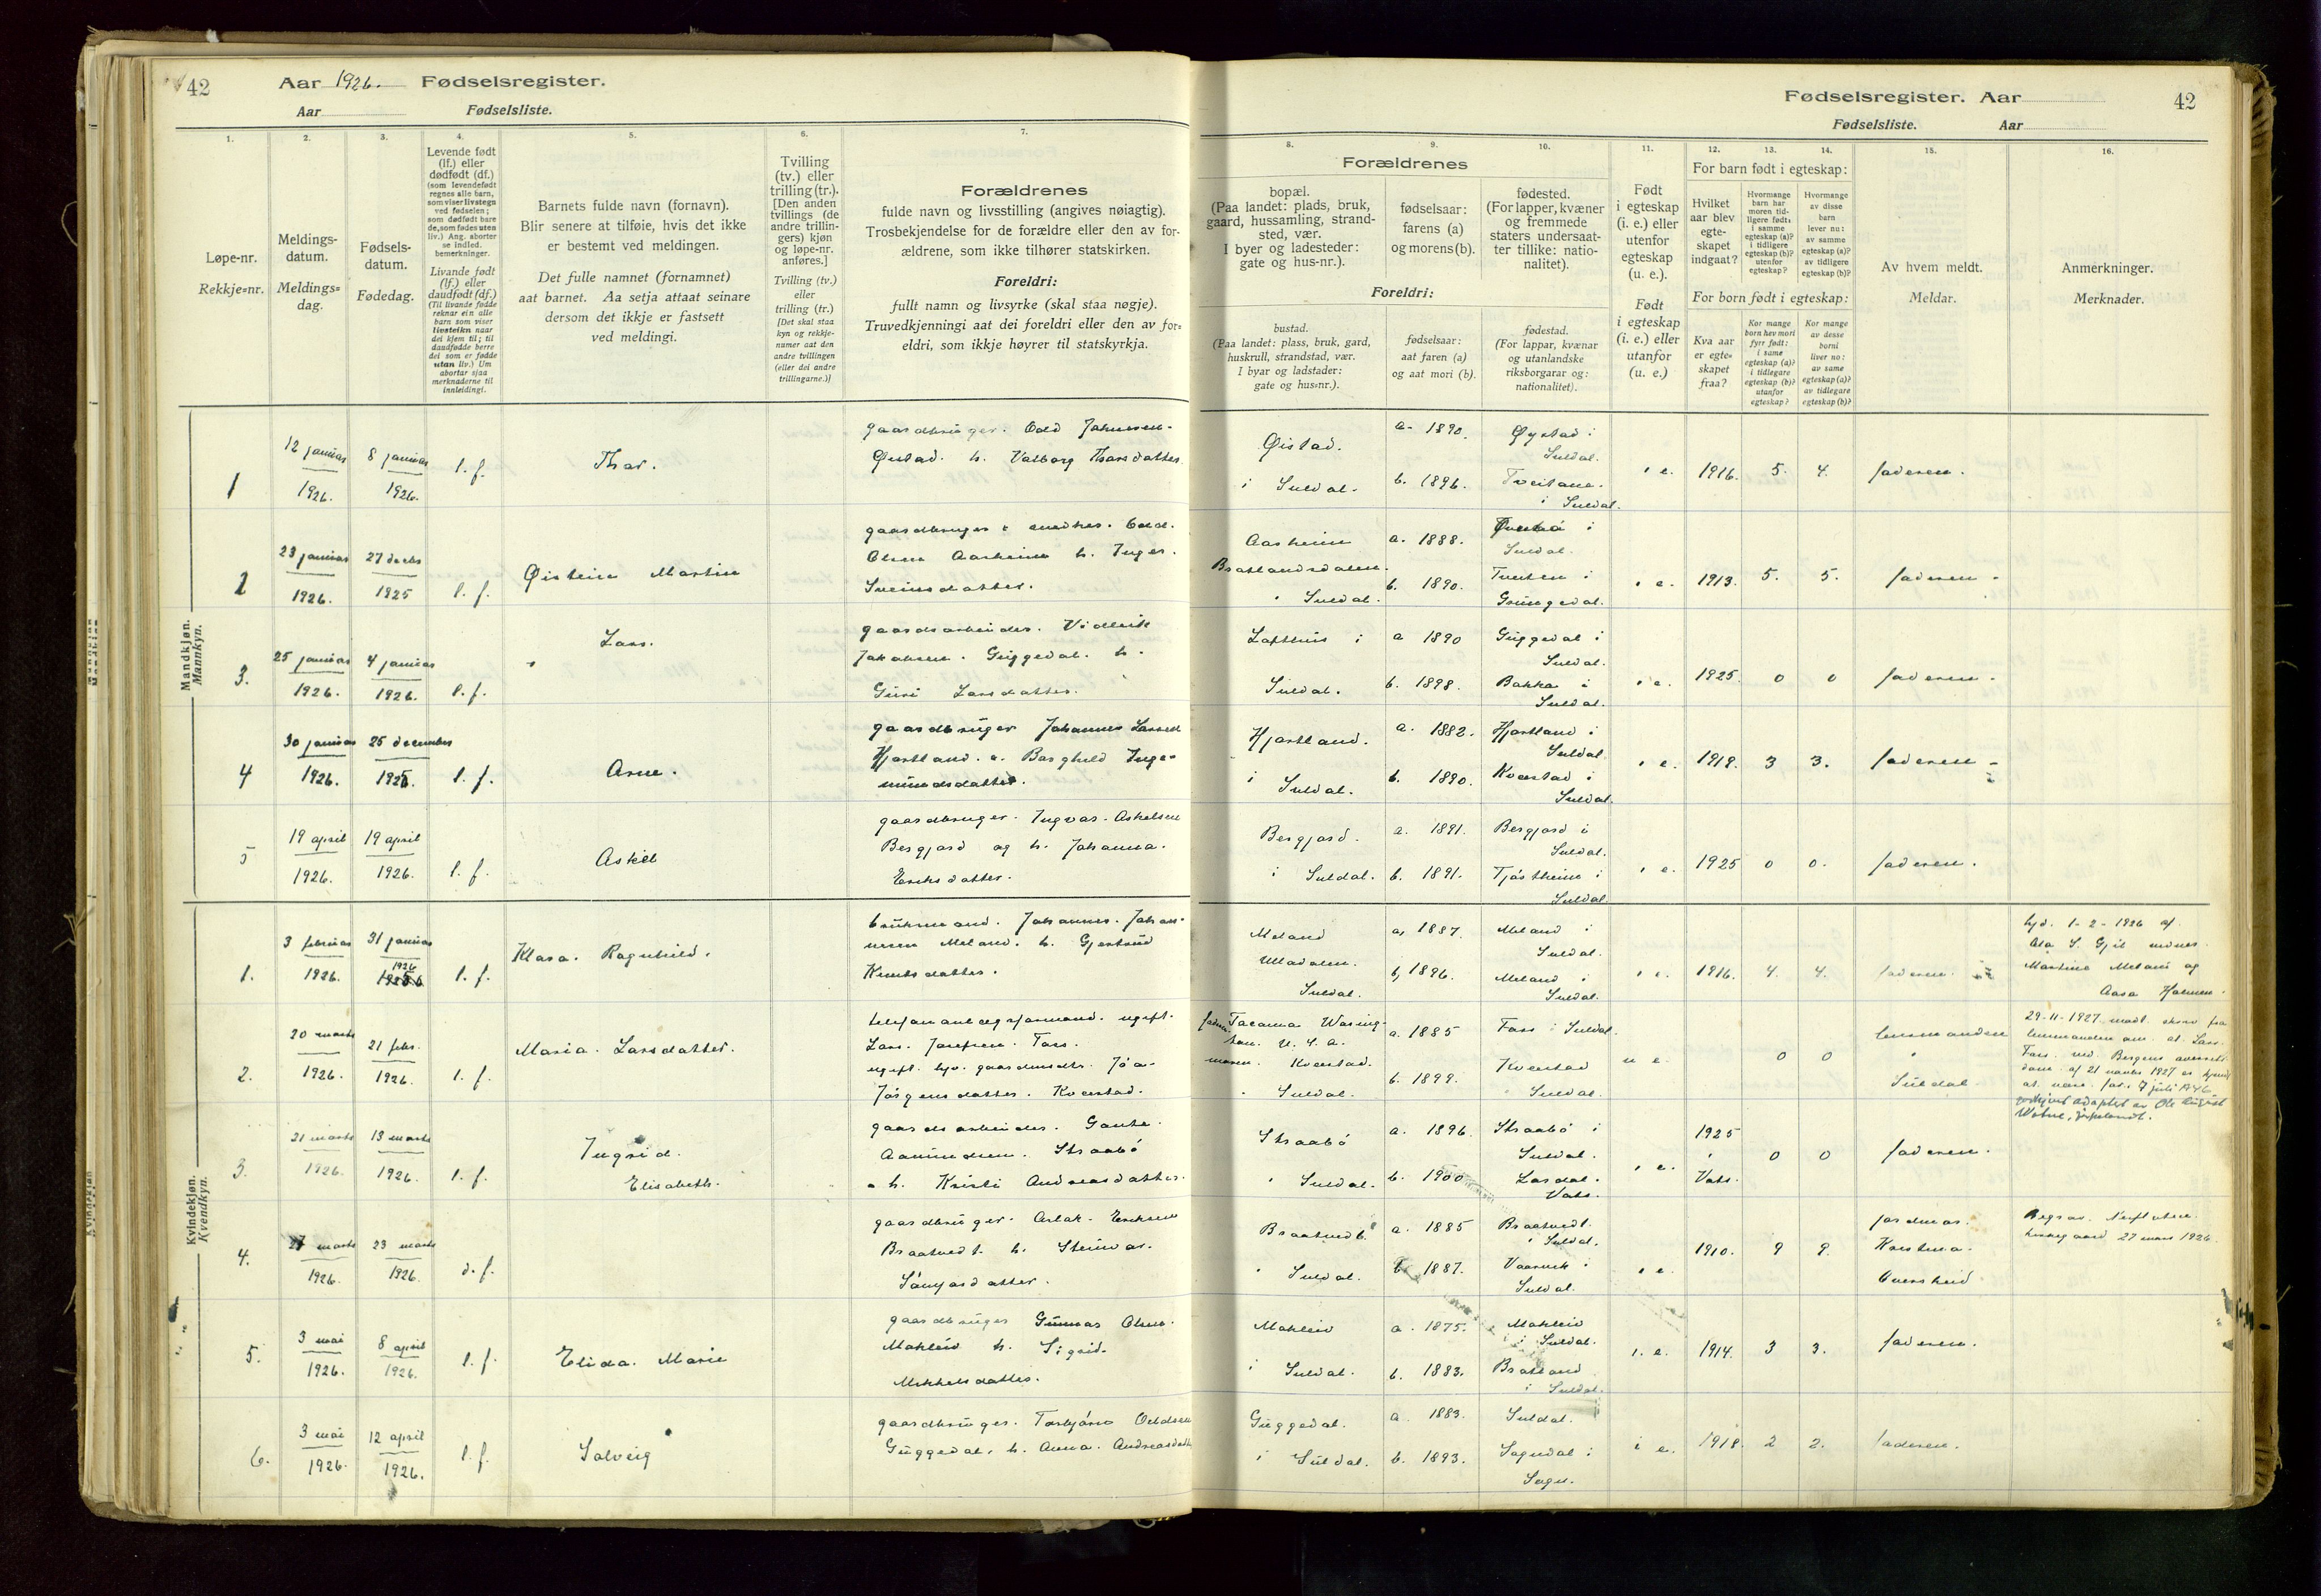 42
Aar 1926. Fødselsregister.
Aar Fødselsliste.
1.
2.
3.
4.
5.
6.
7.
Løpe-nr.
Rekkje=nr.
Meldings-
datum.
Meldings=
dag.
Fødsels-
datum.
Fødedag.
Levende født
(lf.) eller
dødfødt (df.)
(som levendefødt
regnes alle barn,
som viser livstegn
ved fødselen;
som dødfødt bare
de, som fødes uten
liv.) Ang. aborter
se indled.
bemerkninger.
Livande født
(lf.) eller
daudfødt (df.)
(Til livande fødde
reknar ein alle
barn som viser
livsteikn naar
dei kjem til; til
daudfødde berre
dei som er fødde
utan liv.) Um
abortar sjaa
merknaderne til
innleidingi.
Barnets fulde navn (fornavn).
Blir senere at tilføie, hvis det ikke
er bestemt ved meldingen.
Det fulle namnet (fornamnet)
aat barnet. Aa setja attaat seinare
dersom det ikkje er fastsett
ved meldingi.
Tvilling
(tv.) eller
trilling (tr.).
[Den anden
tvillings (de
andre trillin-
gers) kjøn
og løpe-nr.
anføres.]
Tvilling (tv.)
eller
trilling (tr.)
[Det skal staa
kyn og rekkje-
numer aat den
andre tvillingen
(eller dei andre
trillingarne.)]
Forældrenes
fulde navn og livsstilling (angives nøiagtig).
Trosbekjendelse for de forældre eller den av for-
ældrene, som ikke tilhører statskirken.
Foreldri:
fullt namn og livsyrke (skal staa nøgje).
Truvedkjenningi aat dei foreldri eller den av for=
eldri, som ikkje høyrer til statskyrkja.
Mandkjøn.
Mannkyn.
1
12 januar
1926.
8 januar
1926.
l. f.
Thor.
gaardbruger. Odd Johnsen.
Øistad. h. Valborg Thorsdatter.
2
23 januar
1926.
27 decbr
1925
l. f.
Øistein Martin
gaardbruger & snedker. Odd.
Olsen Aarheim h. Inger.
Sveinsdatter.
3.
25 januar
1926.
4 januar
1926.
l. f.
Lars.
gaardsarbeider. Vidleik
Jakobsen. Guggedal. h.
Guri Larsdatter.
4
30 januar
1926.
25 december
1925.
l. f.
Arne.
gaardbruger Johannes Larsen
Hjortland. & Borghild Inge-
mundsdatter.
5
19 april
1926.
19 april
1926.
l. f.
Askel
gaardbruger. Ingvar. Askelsen
Bergjord og h. Johanna.
Eriksdatter.
Kvindekjøn.
Kvendkyn.
1.
3 februar
1926.
31 januar
1926
l. f.
Klara. Ragnhild.
bruksmand. Johannes. Johan-
nesen Meland. h. Gjertrud
Knutsdatter.
2.
20 marts
1926.
21 febr.
1926.
l. f.
Maria. Larsdatter.
ugift.
Lars. Josefsen. Foss.
ugift. hj. gaardmdtr. Jóa-
Jørgensdatter. Kvæstad.
3.
21 marts
1926.
13 marts
1926.
l. f.
Ingrid.
Elisabeth.
gaardsarbeider. Gaute.
Aamundsen. Straabø
& h. Kristi Andreasdatter.
4.
27 marts
1926.
23 marts
1926.
d. f.
gaardbruger. Aslak. Eriksen
Braatvedt. h. Steinvor.
5.
3 mai
1926.
8 april
1926.
l. f.
Elida. Marie
gaardbruger Gunnar Olsen.
Mokleiv h. Sigrid.
Mikkelsdatter.
6.
3 mai
1926.
12 april
1926.
l. f.
Solveig
gaardbruger. Torbjørn Oddsen
Guggedal. h. Anna. Andreasdatter
Fødselsregister. Aar
42
Fødselsliste. Aar
8.
9.
10.
11.
12.
13.
14.
15.
16.
Forældrenes
bopæl.
(Paa landet: plads, bruk,
gaard, hussamling, strand-
sted, vær.
I byer og ladesteder:
gate og hus-nr.).
fødselsaar:
farens (a)
og morens (b).
fødested.
(For lapper, kvæner
og fremmede
staters undersaat-
ter tillike: natio-
nalitet).
Foreldri:
bustad.
(Paa landet: plass, bruk, gard,
huskrull, strandstad, vær.
I byar og ladstader:
gate og hus=nr.).
fødselsaar:
aat faren (a)
og aat mori (b).
fødestad.
(For lappar, kvænar
og utanlandske
riksborgarar og:
nationalitet).
Født
i egteskap
(i. e.) eller
utenfor
egteskap
(u. e.).
Født
i egteskap
(i. e.) eller
utanfor
(u. e.)
For barn født i egteskap:
Hvilket
aar blev
egte-
skapet
indgaat?
Hvormange
barn har
moren tid-
ligere født:
i samme
egteskap (a)?
i tidligere
egteskap (b)?
utenfor
egteskap?
Hvormange
av disse
barn
lever nu:
av samme
egteskap (a)?
av tidligere
egteskap (b)?
For born født i egteskap:
Kva aar
er egte=
skapet
fraa?
Kor mange
born hev mori
fyrr født:
i same
egteskap (a)?
i tidlegare
egteskap (b)?
utanfor
egteskap?
Kor mange
av desse
borni
liver no:
av same
egteskap (a)?
av tidlegare
egteskap (b)?
Av hvem meldt.
Meldar.
Anmerkninger.
Merknader.
Øistad.
i Suldal.
a. 1890.
b. 1896.
Øystad i
Suldal.
Tveitane.
i Suldal.
i e.
1916.
5.
4.
faderen.
Aarheim
Bratlandsdalen.
i Suldal.
a. 1888.
b. 1890.
i
Suldal.
Tveiten i
Grungedal.
i e.
1913.
5.
5.
faderen.
Lofthus i
Suldal.
a 1890
b. 1898.
Guggedal i
Suldal.
Bakka i
Suldal.
i e.
1925.
0
0
faderen.
Hjortland.
i Suldal.
a. 1882.
b. 1890.
Hjortland i
Suldal.
Kvæstad i
Suldal.
i e.
1919.
3
3.
faderen
Bergjord.
i Suldal.
a. 1891.
b. 1891.
Bergjord i
Suldal.
Tjøstheim i
Suldal.
i e.
1925
0
0.
faderen.
Meland
Uladalen.
Suldal.
a, 1887.
b, 1896.
Meland i
Suldal.
Meland i
Suldal.
i e.
1916.
4.
4.
faderen.
hjd. 1-2-1926 af
Martine Meland og
Aasa
faderen. Tacoma Washing-
ton. U. S. A.
moren. Kvæstad.
i Suldal.
a. 1885
b. 1899.
Foss i Suldal
Kvæstad
i Suldal.
u e.
0
0
lensmanden
i
Suldal
29-11-1927. modt. skriv fra
lensmanden om at Lars
Foss. ved Bergens
af 21 novbr 1927 er kjendt
at være far. 7 juli 1946
godkjent adoptert av Ole August
Straabø
i Suldal.
a. 1896.
b. 1900
Straabø i
Suldal.
Vats.
i e.
1925
i
Vats.
0
0
faderen.
Braatvedt
i Suldal.
a. 1885
b. 1887.
Braatvedt.
i Suldal.
Vaarvik i
Suldal.
i e.
1910.
9
9.
jordmor.
Begrav. Nesflaten
kirkegaard 27 mars 1926.
Mokleiv
i Suldal.
a. 1875.
b. 1883.
Mokleiv
i Suldal.
Bratland
i Suldal.
i. e.
1914.
3
3.
faderen.
Guggedal.
i Suldal.
a. 1883.
b. 1893.
Suldal.
Sogndal i
Sogn.
i e.
1918.
2
2.
faderen.